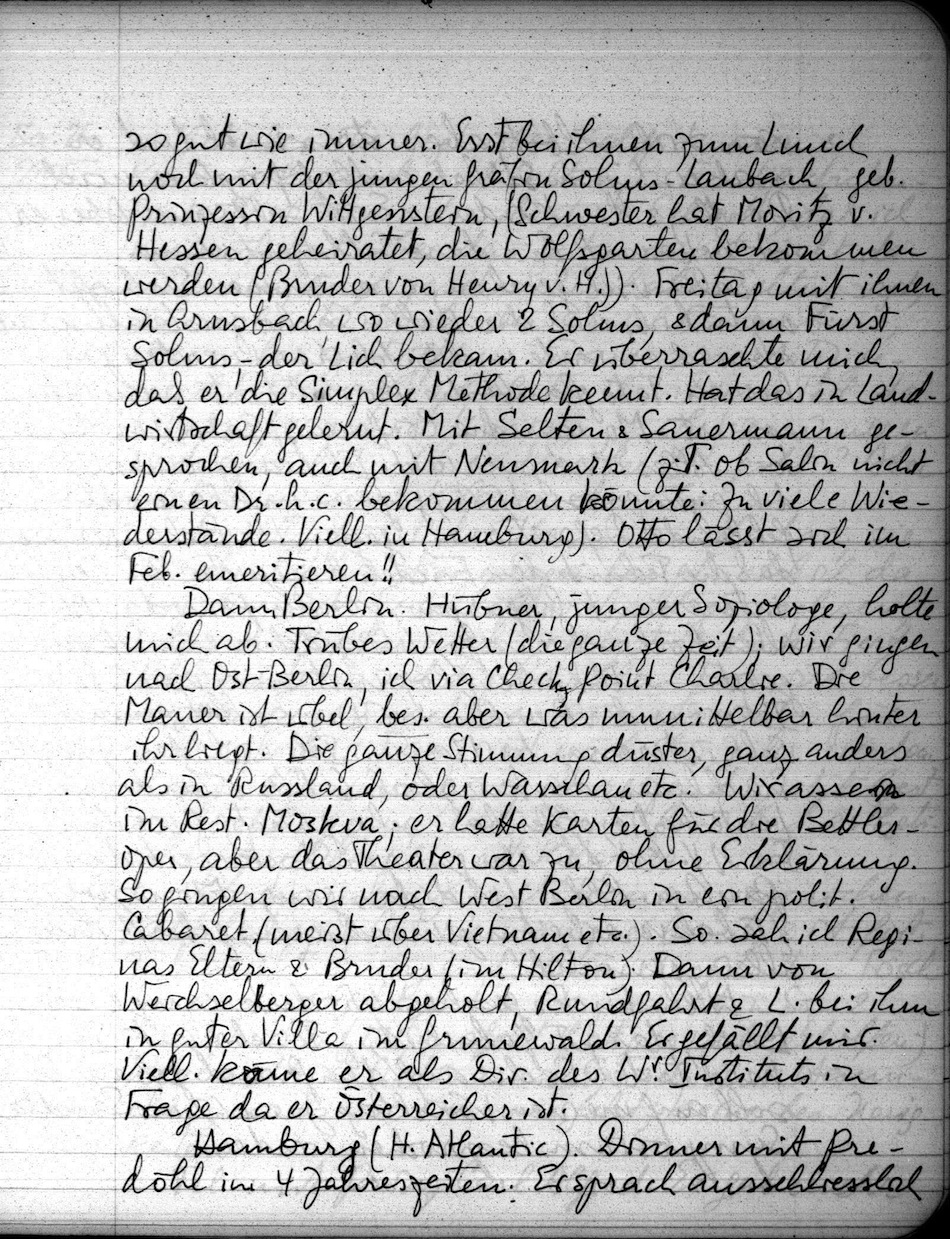 so gut wie immer. Erst bei ihnen zum Lunch
noch mit der jungen Gräfin Solms-Laubach, geb.
Prinzessin Wittgenstein, (Schwester hat Moritz v.
Hessen geheiratet, die Wolfsgarten bekommen
werden (Bruder von Henry v. H.)). Freitag mit ihnen
in Arnsbach wo wieder 2 Solms, & dann Fürst
Solms, der Lich bekam. Er überraschte mich,
das er die Simplex Methode kennt. Hat das in Land-
wirtschaft gelernt. Mit Selten & Sauermann ge-
sprochen, auch mit Neumark (z.T. ob Salin nicht
einen Dr. h.c. bekommen könnte: zu viele Wie-
derstände. Viell. in Hamburg). Otto lässt sich im
Feb. emeritieren!!
Dann Berlin. Hübner, junger Soziologe, holte
mich ab. Trübes Wetter (die ganze Zeit); wir gingen
nach Ost-Berlin, ich via Check Point Charlie. Die
Mauer ist übel, bes. aber was unmittelbar hinter
ihr liegt. Die ganze Stimmung düster, ganz anders
als in Russland, oder Warschau etc. Wir assen
im Rest. Moskva; er hatte Karten für die Bettler-
oper, aber das Theater war zu, ohne Erklärung.
So gingen wir nach West Berlin in ein polit.
Cabaret (meist über Vietnam etc.). So. sah ich Regi-
nas Eltern & Bruder (im Hilton). Dann von
Weichselberger abgeholt, Rundfahrt & L. bei ihm
in guter Villa im Grunewald. Er gefällt mir.
Viell. käme er als Dir. des Wr. Instituts in
Frage da er Österreicher ist.
Hamburg (H. Atlantic). Dinner mit Pre-
döhl im 4 Jahreszeiten. Er sprach ausschliesslich